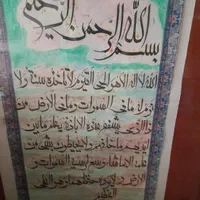 بسم الله الرحمن الرحيم
الله لا اله الا هو الحي القيوم لا تأخذه سنة ولا
نوم له ما في السموات وما في الأرض من
ذا الذي يشفع عنده الا باذنه يعلم ما بين
ايديهم وما خلفهم ولا يحيطون بشئ من
علمه الا بما شاء وسع كرسيه السموات و
الارض ولا يؤده حفظهما وهو العلي
العظيم